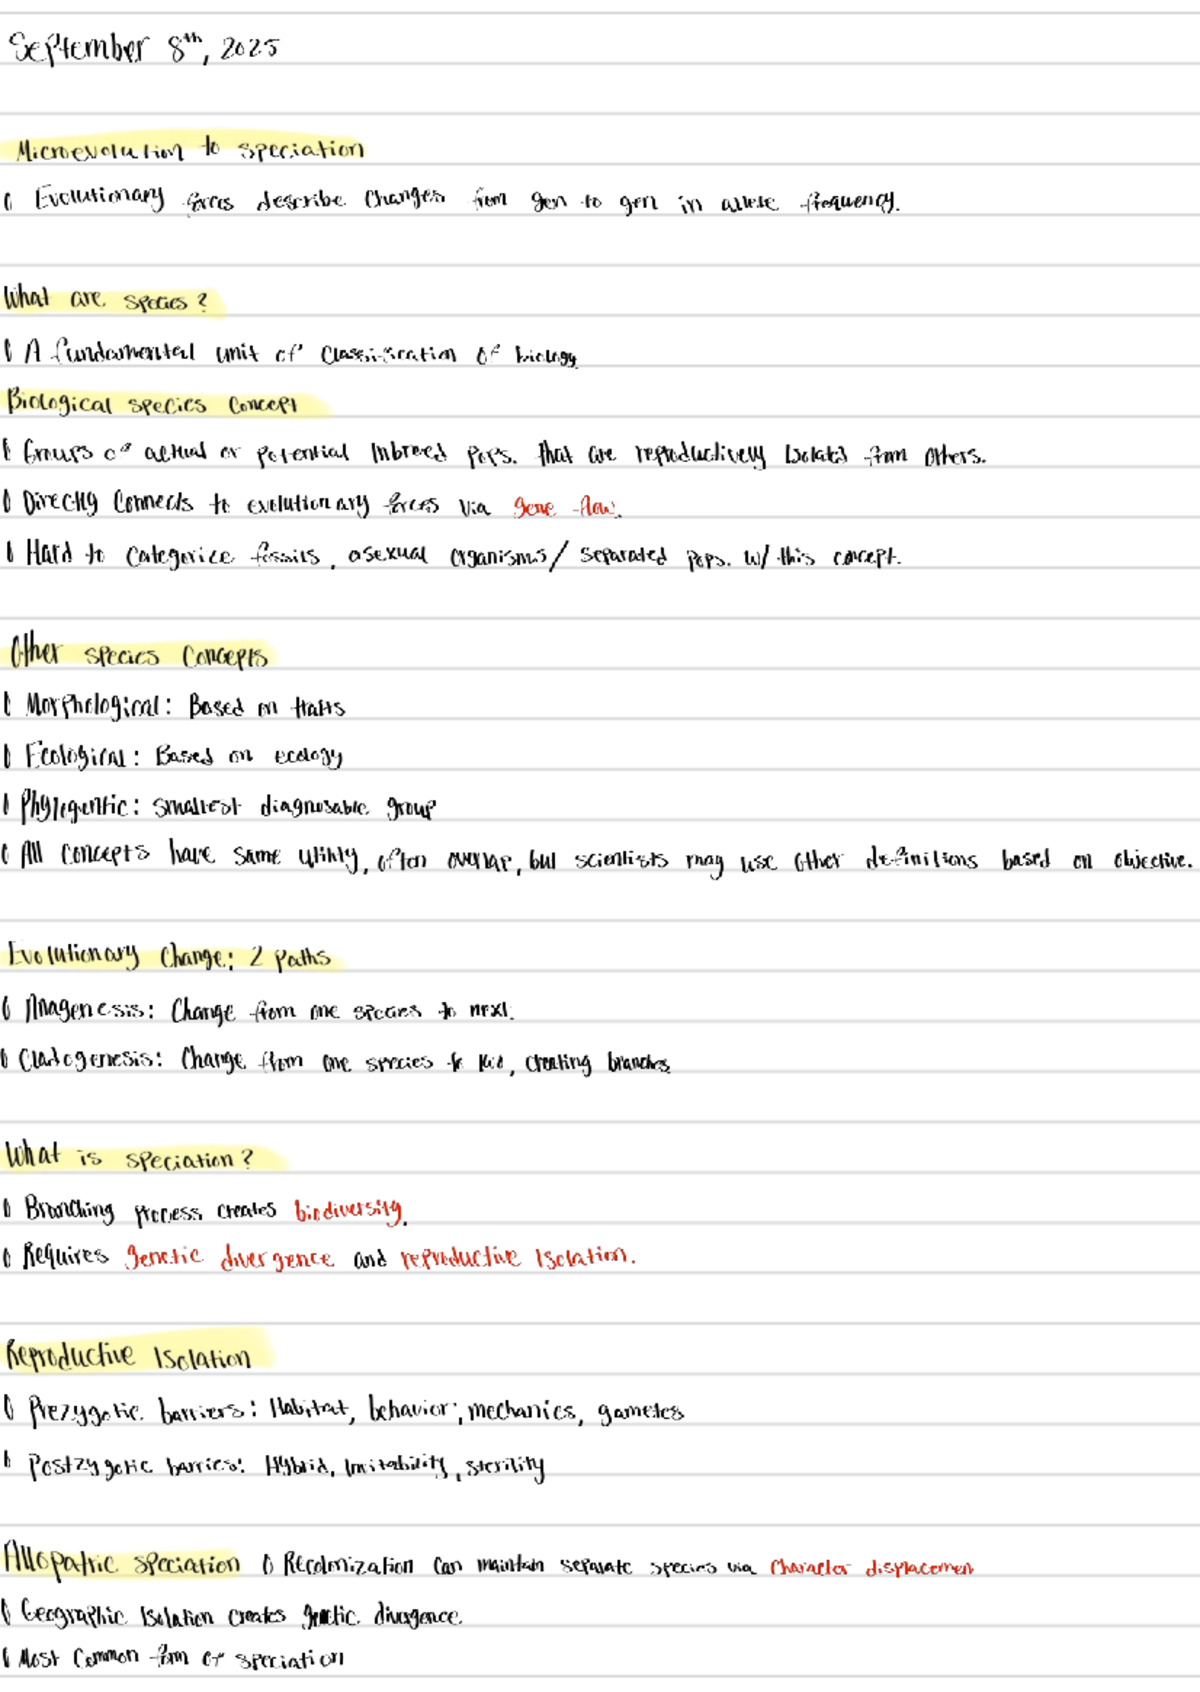 September 8th, 2025
Microevolution to speciation
Evolutionary forces describe changes from gen to gen in allele frequency.
What are species?
A fundamental unit of classification of biology.
Biological species concept
Groups of actual or potential Inbreed pops. that are reproductively Isolated from others.
Directly connects to evolutionary forces via gene flow.
Hard to categorize fossils, asexual organisms/ separated pops. w/ this concept.
Other species concepts
Morphological: Based on traits
Ecological: Based on ecology
Phylogentic: smallest diagnosable group
All concepts have same utility, often overlap, but scientists may use other definitions based on objective.
Evolutionary change: 2 paths
Anagenesis: Change from one species to next.
Cladogenesis: Change from one species to , creating branches.
What is speciation?
Branching process creates biodiversity.
Requires genetic divergence and reproductive Isolation.
Reproductive Isolation
Prezygotic barriers: Habitat, behavior, mechanics, gametes
Postzygotic barries: Hybrid, , sterility
Allopatric speciation Recolonization can maintain separate species via character displacement
Geographic Isolation creates genetic divergence.
Most common form of speciation